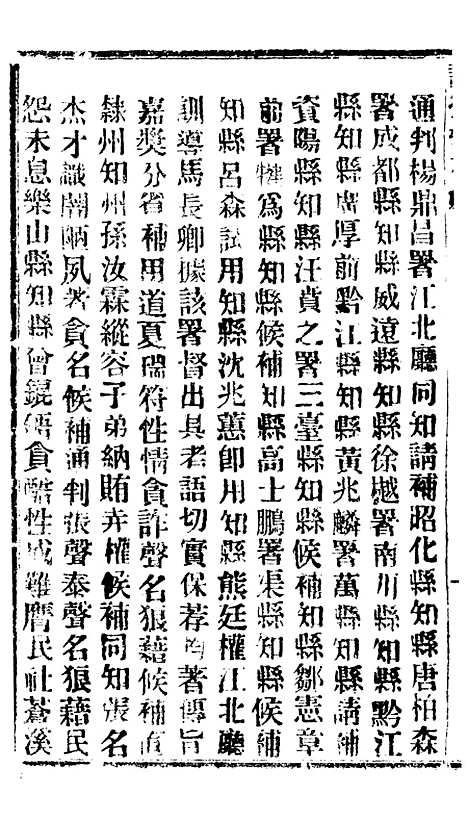 通判楊鼎昌署江北廳同知請補昭化縣知縣唐柏森
署成都縣知縣威遠縣知縣徐樾署南川縣知縣黔江
縣知縣廣厚前黔江縣知縣黃兆麟署萬縣知縣請補
資陽縣知縣汪賁之署三臺縣知縣候補知縣鄒憲章
前署犍為縣知縣候補知縣高士鵬署渠縣知縣候補
知縣呂森試用知縣沈兆蕙卽用知縣熊廷權江北廳
訓導馬長卿據該署督出具考語切實保荐均著傳旨
嘉獎分省補用道夏瑞符性情貪詐聲名狼藉候補直
隸州知州孫汝霖縱容子弟納賄弄權候補同知張名
杰才識闇陋夙著貪名候補通判張聲泰聲名狼藉民
怨未息樂山縣知縣曾錕鋙貪酷性成難膺民社蒼溪